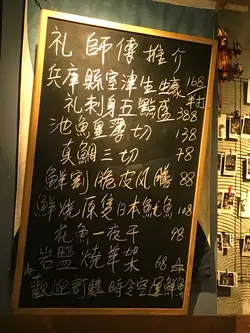 礼師傅推介
兵庫縣室津生生蠔 168
礼刺身五點盛 388
池魚薄切 138
真鯛三切 78
鮮劏脆皮風鱔 88
鮮燒原隻日本魷魚 108
花魚一夜干 98
岩鹽燒 68
歡迎訂購時令空運鮮魚